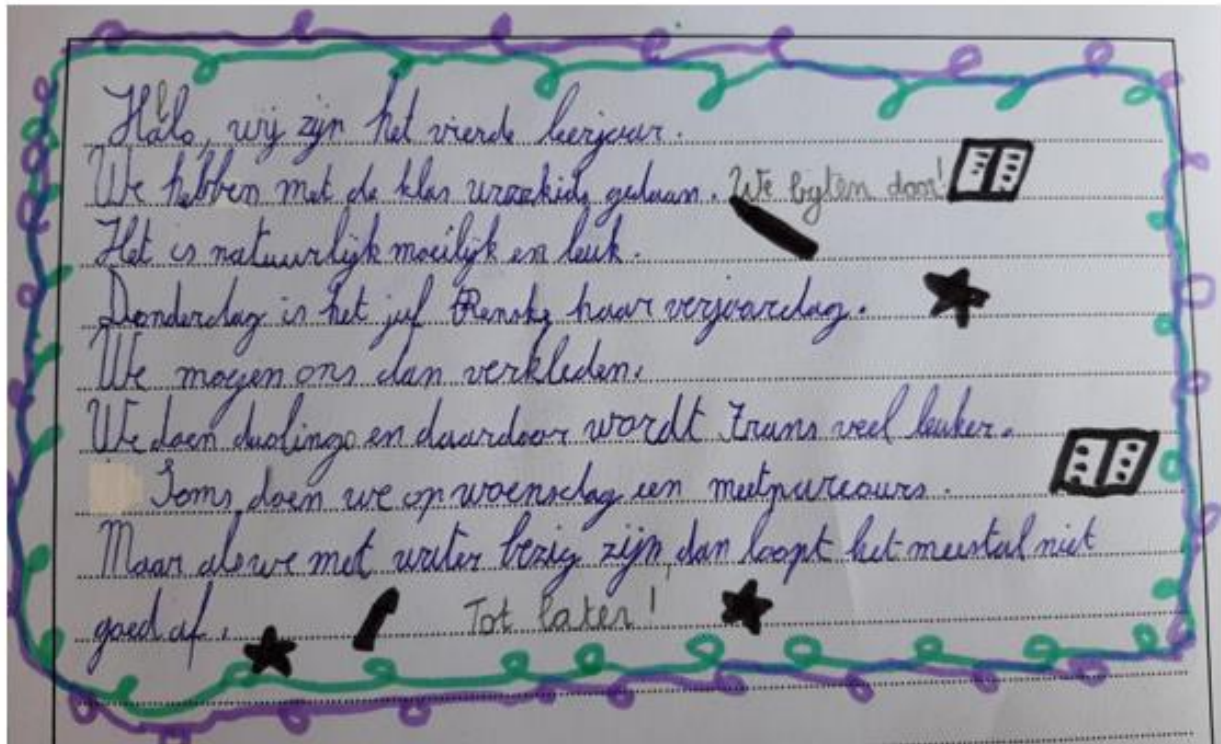 Hallo, wij zijn het vierde leerjaar.
We hebben met de klas wezekids gedaan. We bijten door!
Het is natuurlijk moeilijk en leuk.
Donderdag is het juf Renske haar verjaardag.
We mogen ons dan verkleden.
We doen duolingo en daardoor wordt Frans veel leuker.
Soms doen we op woensdag een meetparcours.
Maar als we met water bezig zijn, dan loopt het meestal niet
goed af. Tot later!